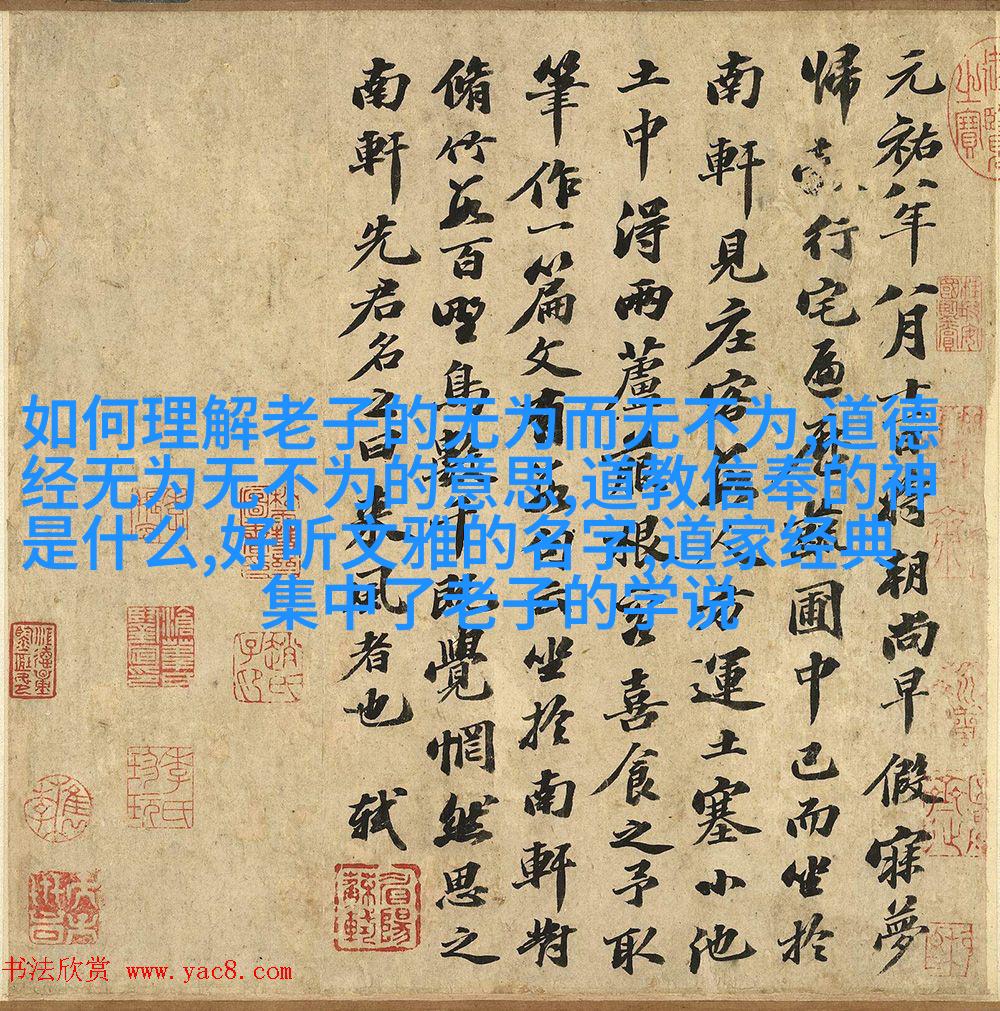 元祐八年八月十一日將朝尚早假寐夢
歸行宅遍歷蔬圃中已而坐於
南軒見庄客數人方運土塞小池
土中得兩蘆菔根客喜食之予取
筆作一篇文有數句云坐於南軒對
脩竹數百野鳥數千既覺惘然思之
南軒先君名之曰来風者也 軾
如何理解老子的无为而无不为,道德
经无为无不为的意思,道教信奉的神
是什么,好听文雅的名字,道家经典
集中了老子的学说
书法欣赏 www.yac8.com